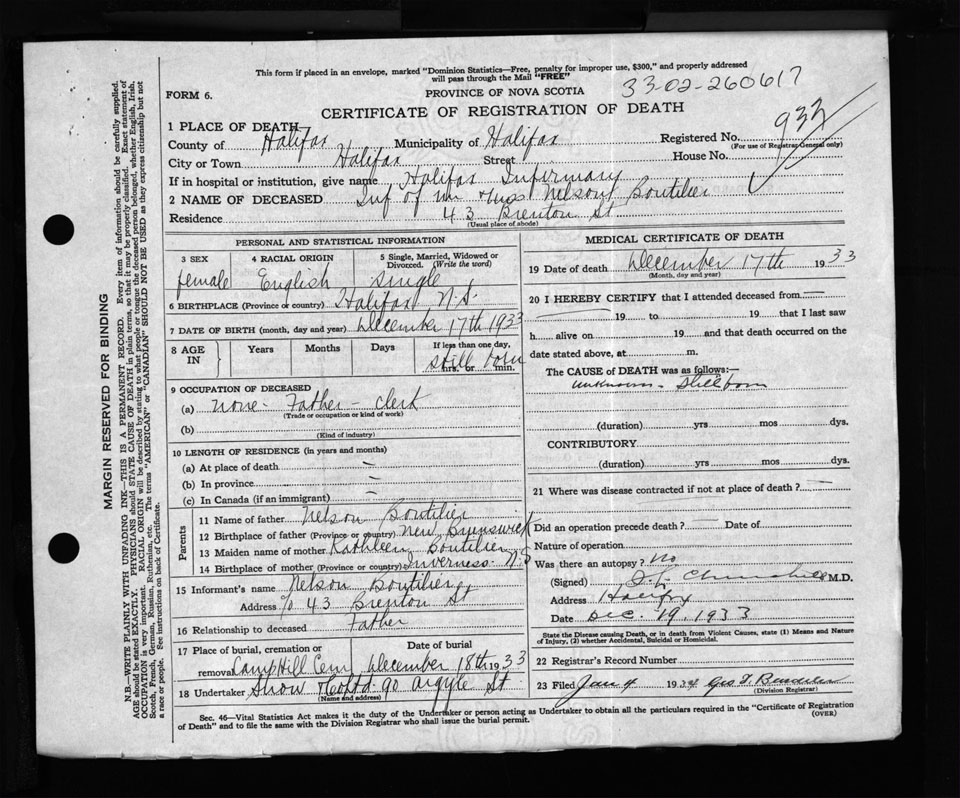 This form if placed in an envelope, marked "Dominion Statistics—Free, penalty for improper use, $300," and properly addressed
will pass through the Mail "FREE"
33-02-260617
FORM 6.
PROVINCE OF NOVA SCOTIA
CERTIFICATE OF REGISTRATION OF DEATH
933
1 PLACE OF DEATH
County of Halifax Municipality of Halifax Registered No.
(For use of Registrar General only)
City or Town Halifax Street House No.
If in hospital or institution, give name Halifax Infirmary
2 NAME OF DECEASED Inf of Mr & Mrs Nelson Boutilier
Residence 43 Brenton St
(Usual place of abode)
PERSONAL AND STATISTICAL INFORMATION
3 SEX 4 RACIAL ORIGIN 5 Single, Married, Widowed or
Divorced. (Write the word)
female English Single
6 BIRTHPLACE (Province or country) Halifax N.S.
7 DATE OF BIRTH (month, day and year) December 17th 1933
8 AGE IN Years Months Days If less than one day,
still born
hrs. or min.
9 OCCUPATION OF DECEASED
(a) none - Father - clerk
(Trade or occupation or kind of work)
(b)
(Kind of industry)
10 LENGTH OF RESIDENCE (in years and months)
(a) At place of death —
(b) In province —
(c) In Canada (if an immigrant) —
Parents
11 Name of father Nelson Boutilier
12 Birthplace of father (Province or country) New Brunswick
13 Maiden name of mother Kathleen Boutilier
14 Birthplace of mother (Province or country) Inverness N.S
15 Informant's name Nelson Boutilier
Address % 43 Brenton St
16 Relationship to deceased Father
17 Place of burial, cremation or Date of burial
removal Camp Hill Cem December 18th 1933
18 Undertaker Snow & Co Ltd 90 Argyle St
(Name and address)
MEDICAL CERTIFICATE OF DEATH
19 Date of death December 17th 1933
(Month, day and year)
20 I HEREBY CERTIFY that I attended deceased from —
— 19 to 19 that I last saw
h alive on 19 and that death occurred on the
date stated above, at m.
The CAUSE of DEATH was as follows:—
unknown - Stillborn
(duration) yrs mos dys.
CONTRIBUTORY
(duration) yrs mos dys.
21 Where was disease contracted if not at place of death? —
Did an operation precede death? — Date of
Nature of operation
Was there an autopsy? No
(Signed) Churchill M.D.
Address Halifax
Date Dec. 19. 1933
State the Disease causing Death, or in death from Violent Causes, state (1) Means and Nature
of Injury, (2) whether Accidental, Suicidal or Homicidal.
22 Registrar's Record Number
23 Filed Jan 4 1934 Geo
(Division Registrar)
Sec. 46—Vital Statistics Act makes it the duty of the Undertaker or person acting as Undertaker to obtain all the particulars required in the "Certificate of Registration
of Death" and to file the same with the Division Registrar who shall issue the burial permit. (OVER)
MARGIN RESERVED FOR BINDING
N.B.—WRITE PLAINLY WITH UNFADING INK—THIS IS A PERMANENT RECORD. Every item of information should be carefully supplied.
AGE should be stated EXACTLY. PHYSICIANS should STATE CAUSE OF DEATH in plain terms, so that it may be properly classified. Exact statement of
OCCUPATION is very important. RACIAL ORIGIN will be described by stating to what people or tongue the deceased person belonged, whether English, Irish,
Scotch, French, German, Russian, Ruthenian, etc. The terms "AMERICAN" or "CANADIAN" SHOULD NOT BE USED as they express citizenship but not
a race or people. See instructions on back of Certificate.